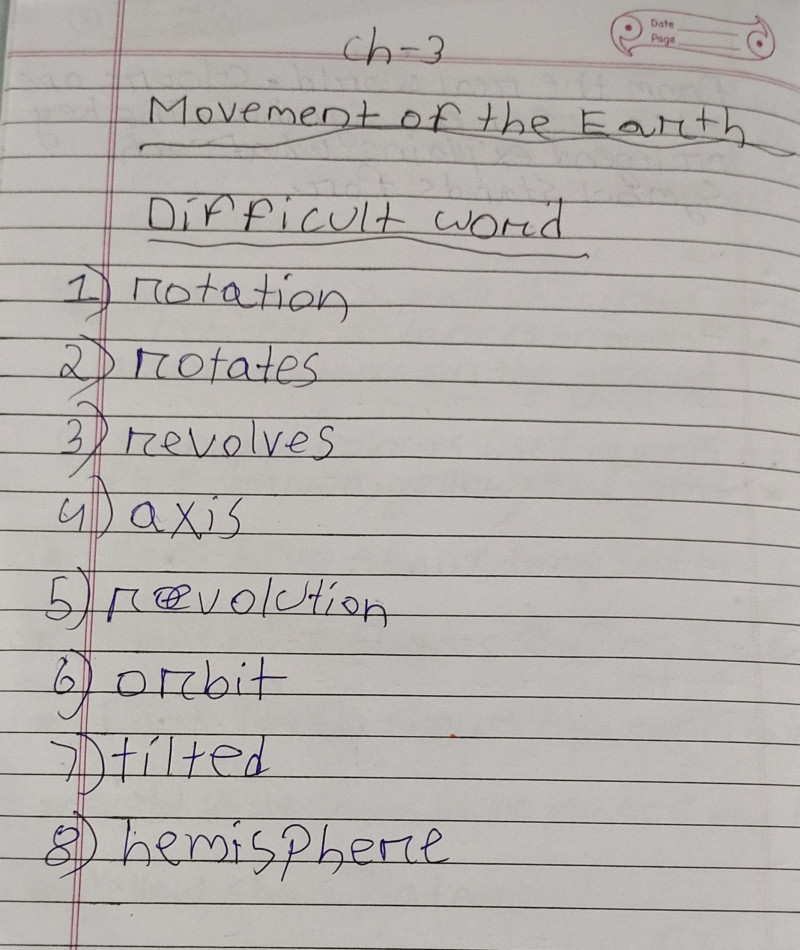 Date
Page
Ch-3
Movement of the Earth
Difficult word
1) rotation
2) rotates
3) revolves
4) axis
5) revolution
6) orbit
7) tilted
8) hemisphere